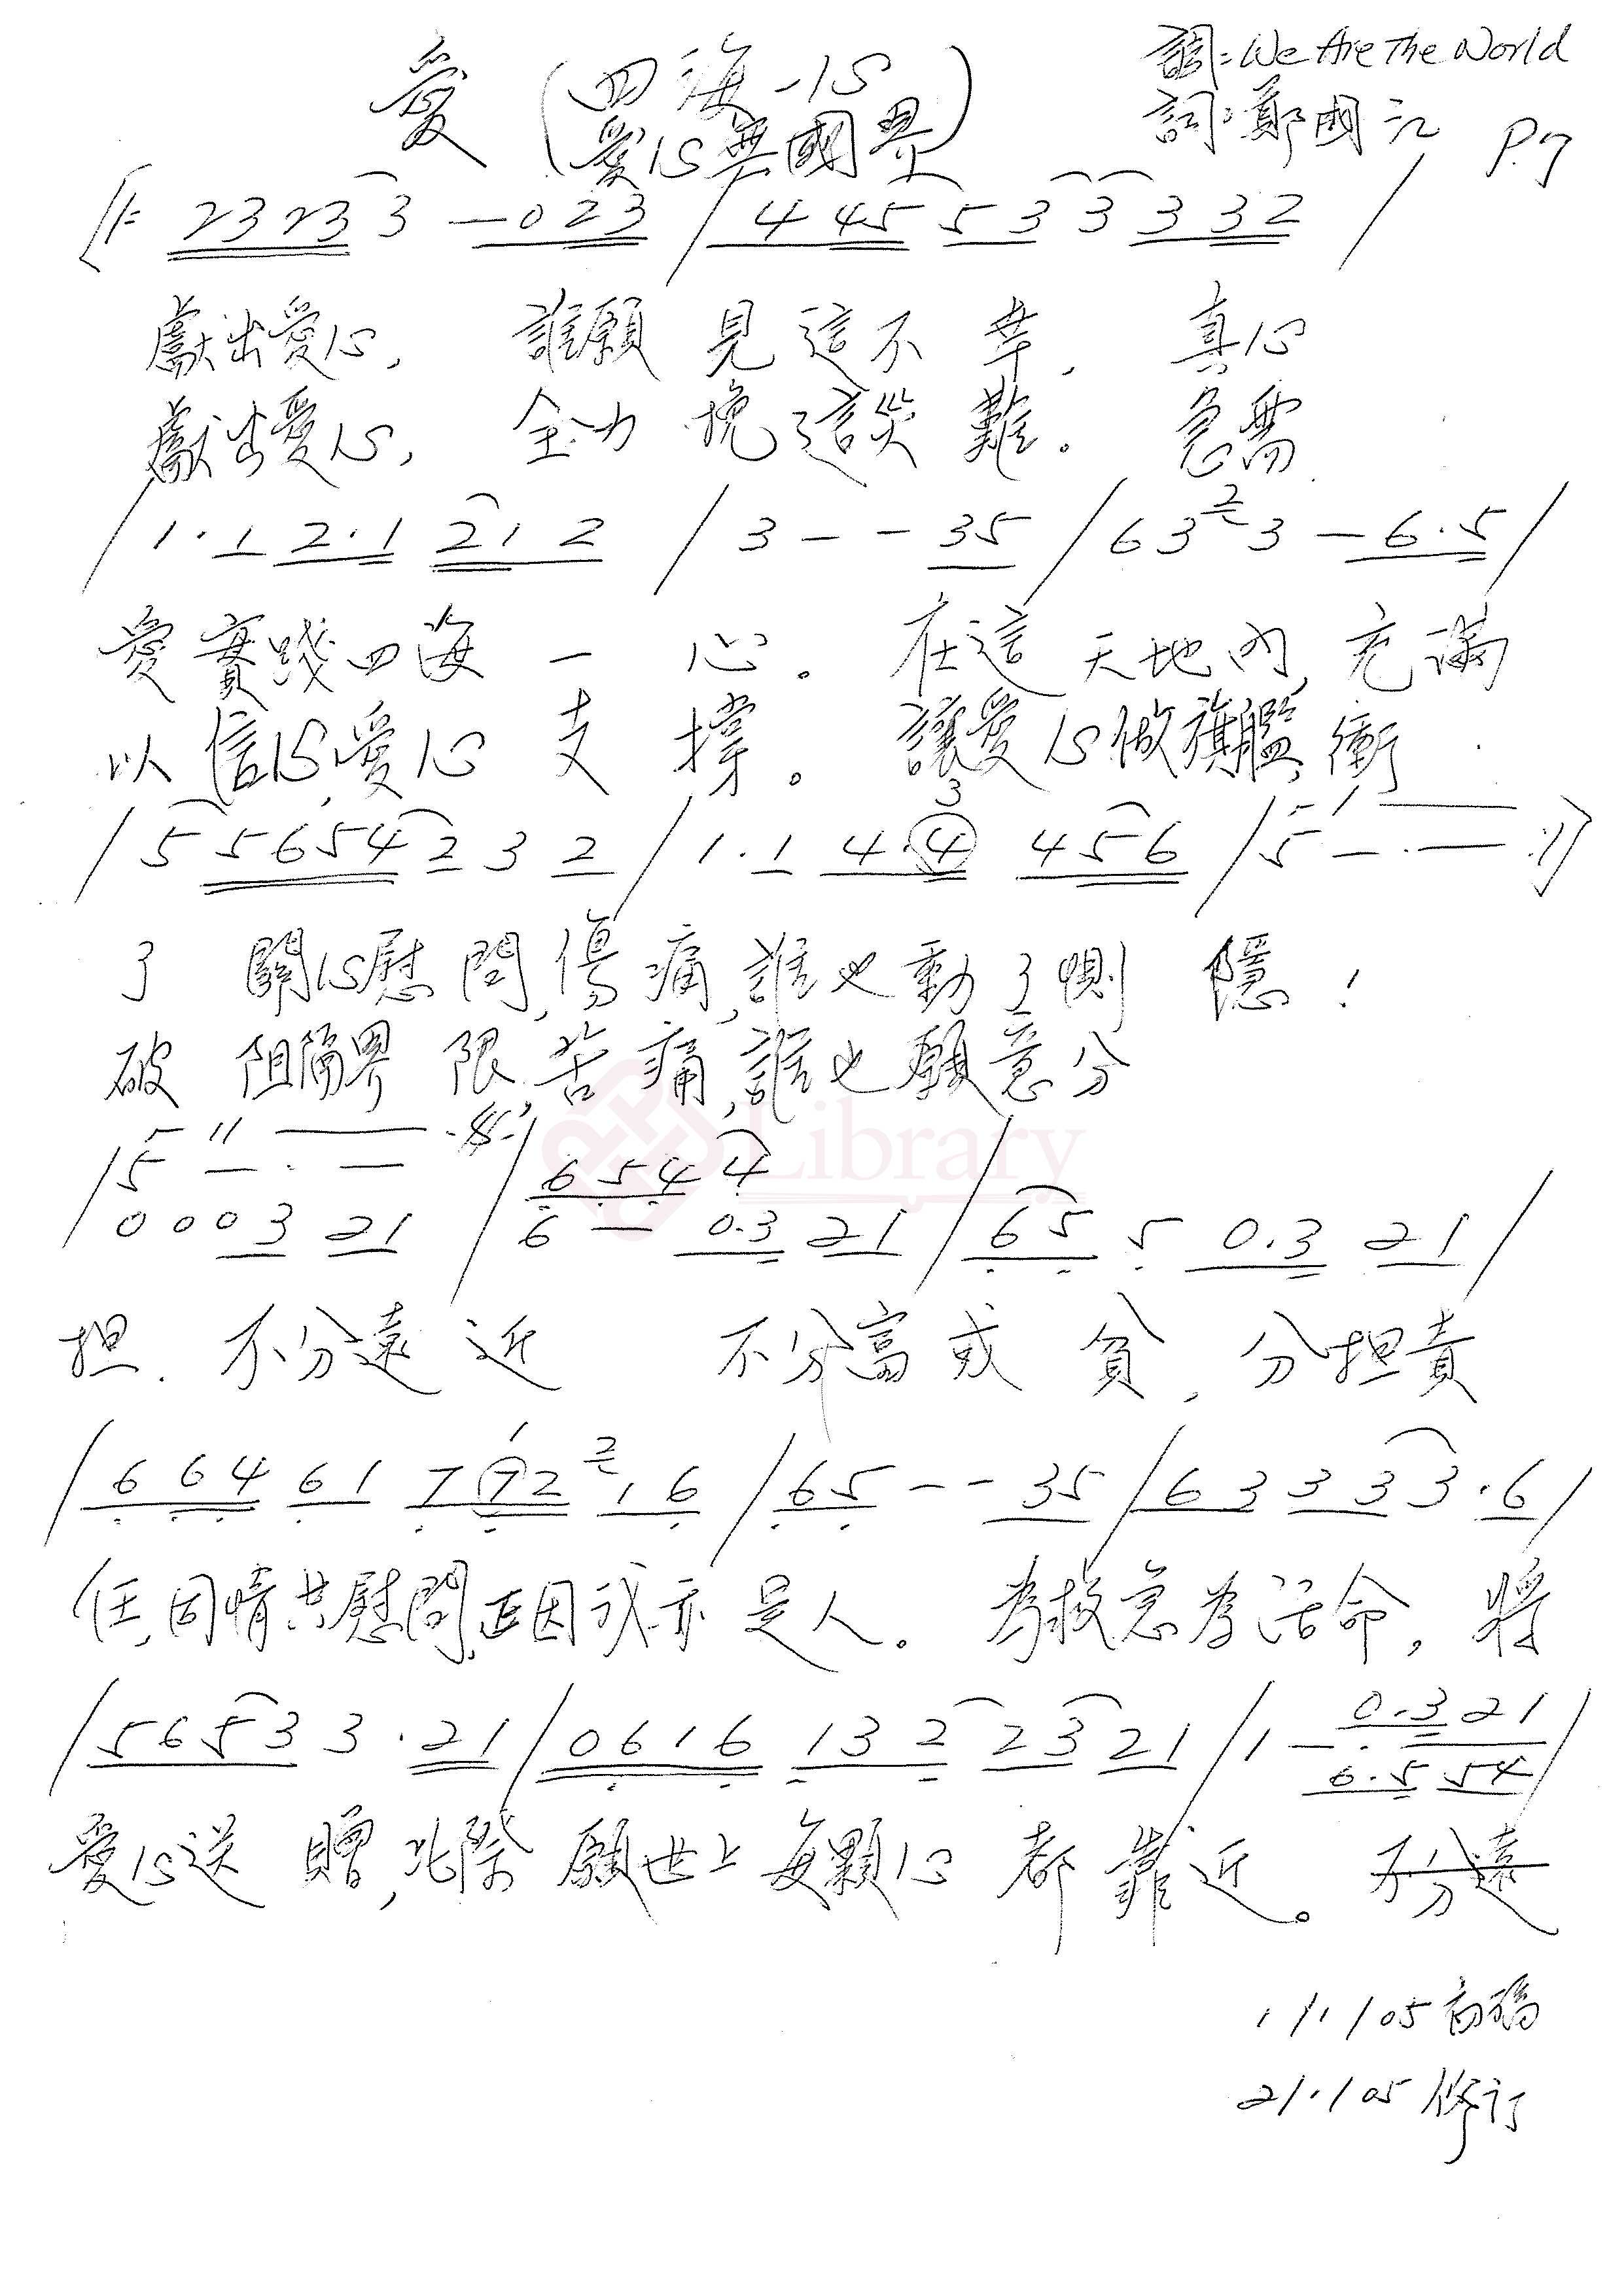 愛（四海一心
愛心無國界）
調：We Are The World
詞：鄭國江 P.7
23233 — 023 / 445 533 332 /
獻出愛心， 誰願見這不幸， 真心
獻出愛心， 全力挽這災難。 急需
/ 1·1 2·1 212 / 3 — - 35 / 63 2 3 — 6·5 /
愛實踐四海一心。在這天地內，充滿
以信心，愛心支撐。讓愛心做旗艦，衝
/ 5 5654 232 / 1·1 4·4 456 / 5 — · — :
3
了關心慰問，傷痛，誰也動了惻隱！
破阻隔界限，苦痛，誰也願意分
/ 5 — · — / 6544 /
/ 0003 21 / 6 — 0·3 21 / 65 5 0·3 21 /
担．不分遠近 不分富或貧，分担責
/ 664 61 772 2 16 / 65 — - 35 / 63 333·6 /
1
任，同情共慰問，正因我亦是人。為救急為活命，將
/ 5653 3·21 / 0616 132 23 21 / 1 — · 0·3 21 /
6·5 54
愛心送贈，此際願世上每顆心都靠近。不分遠
1/1/05 初稿
21·1 05 修訂
Library